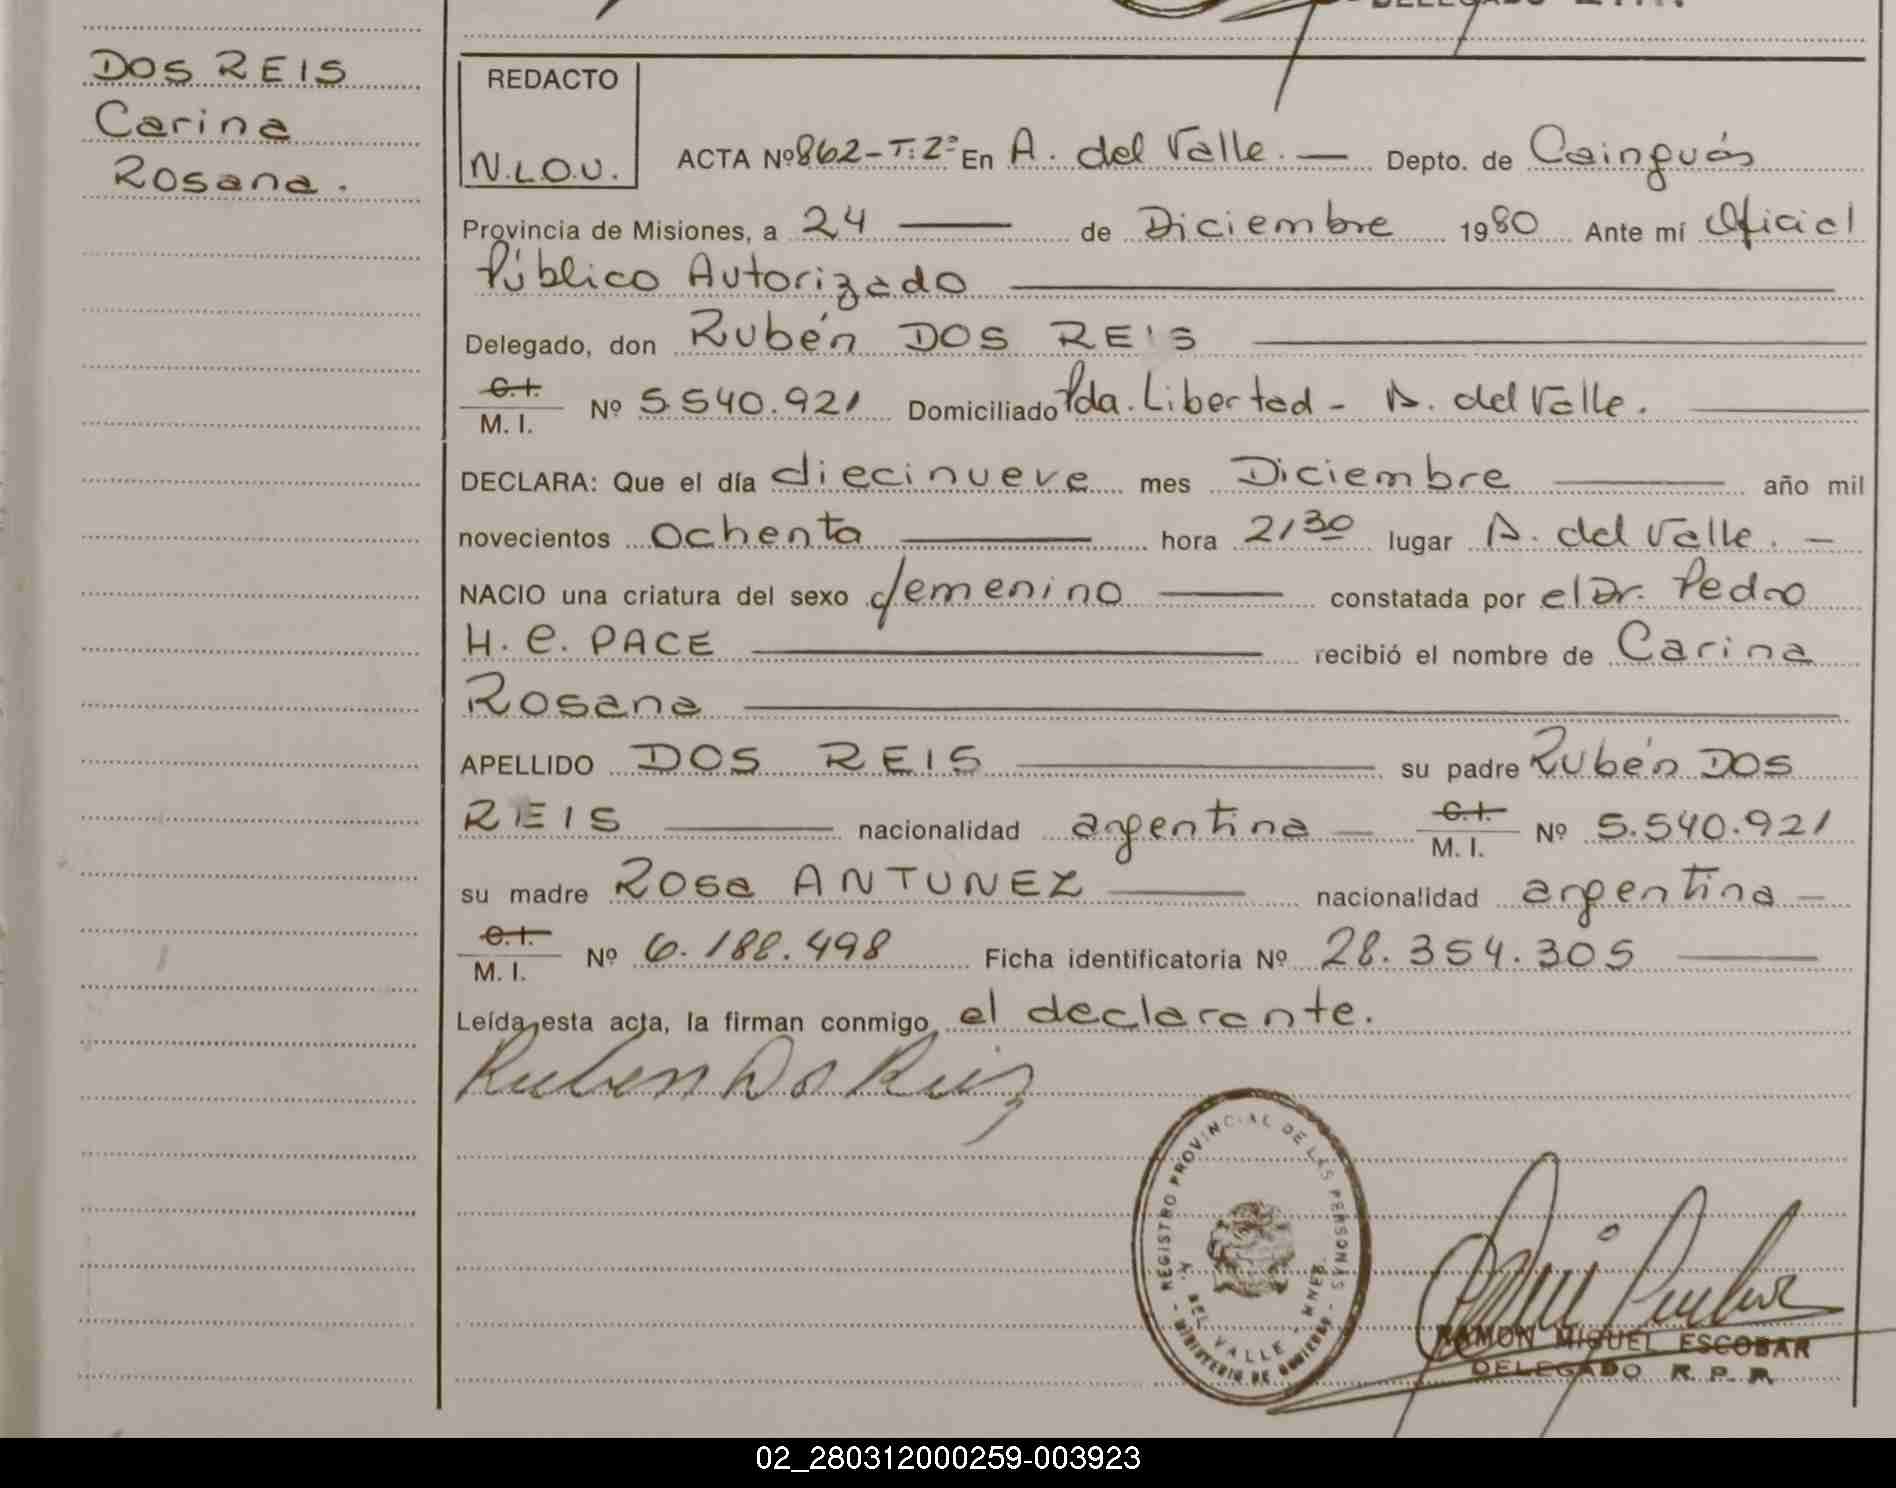 DOS REIS
Carina
Rosana.
REDACTO
N.L.O.U.
ACTA Nº 862-T:2º En A. del Valle. — Depto. de Cainguás
Provincia de Misiones, a 24 — de Diciembre 1980 Ante mí Oficial
Público Autorizado
Delegado, don Rubén DOS REIS
C.I.
M. I. Nº 5.540.921 Domiciliado Pda. Libertad - A. del Valle.
DECLARA: Que el día diecinueve mes Diciembre — año mil
novecientos ochenta — hora 21 30 lugar A. del Valle. —
NACIO una criatura del sexo femenino — constatada por el Dr. Pedro
H. C. PACE — recibió el nombre de Carina
Rosana
APELLIDO DOS REIS — su padre Rubén DOS
REIS — nacionalidad argentina — C.I. M. I. Nº 5.540.921
su madre Rosa ANTUNEZ — nacionalidad argentina —
C.I.
M. I. Nº 6.188.498 Ficha identificatoria Nº 28.354.305 —
Leída esta acta, la firman conmigo, el declarante.
Ruben Dos Reis
REGISTRO PROVINCIAL DE LAS PERSONAS
A. DEL VALLE - MNES.
- MINISTERIO DE GOBIERNO -
RAMON MIGUEL ESCOBAR
DELEGADO R. P. P.
02_280312000259-003923